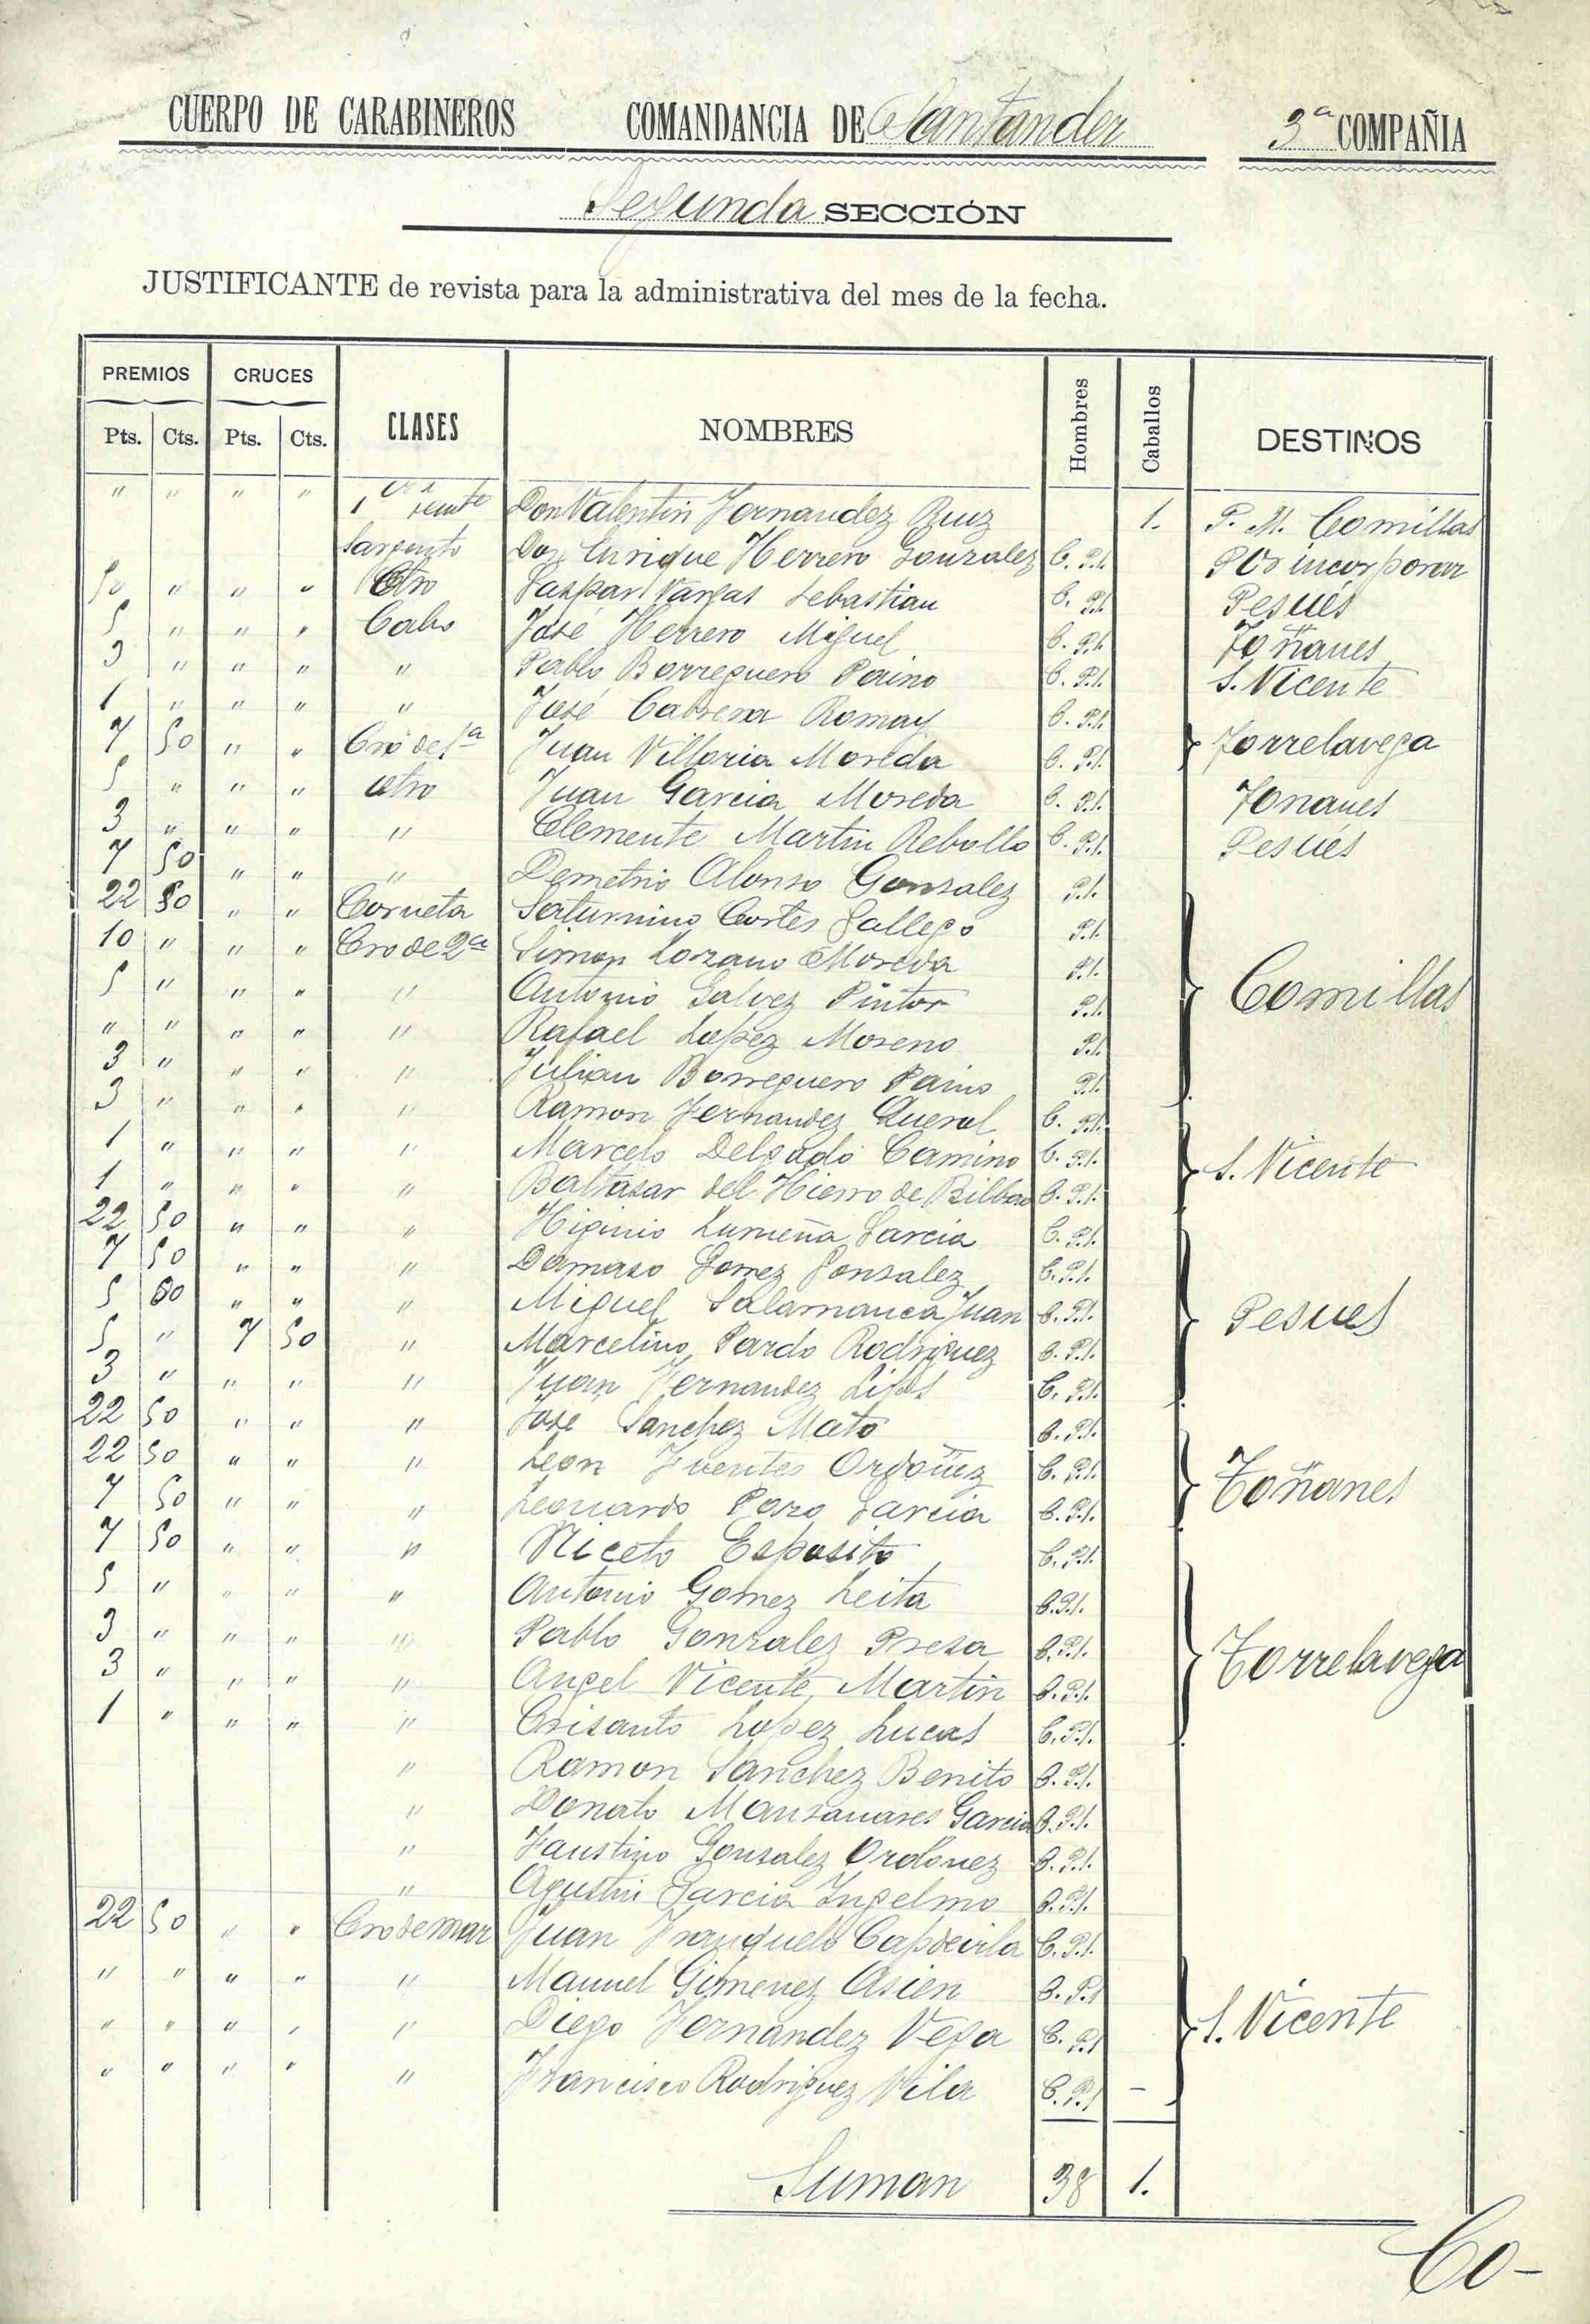 CUERPO DE CARABINEROS COMANDANCIA DE Santander 3ª COMPAÑIA
Segunda SECCIÓN
JUSTIFICANTE de revista para la administrativa del mes de la fecha.
PREMIOS CRUCES CLASES NOMBRES Hombres Caballos DESTINOS
Pts. Cts. Pts. Cts.
" " " " 1er Don Valentin Fernandez Ruiz 1. P. M. Comillas
Sargento Don Enrique Herrero Gonzalez C. P.1. Por incorporar
50 " " " Otro Gaspar Vargas Sebastian C. P.1. Pesués
5 " " " Cabo José Herrero Miguel C. P.1. Toñanes
3 " " " " Pablo Borreguero Paino C. P.1. S. Vicente
1 " " " " José Cabrera Romay C. P.1.
7 50 " " Cro de 1ª Juan Villoria Moreda C. P.1. } Torrelavega
5 " " " otro Juan Garcia Moreda C. P.1. Tonanes
3 " " " " Clemente Martin Rebollo C. P.1. Pesués
7 50 " " " Demetrio Alonso Gonzalez P.1.
22 50 " " Corneta Saturnino Cortes Gallego P.1.
10 " " " Cro de 2ª Simon Lozano Moreda P.1.
5 " " " " Antonio Galvez Pintor P.1. } Comillas
" " " " " Rafael Lopez Moreno P.1.
3 " " " " Julian Borreguero Paino P.1.
3 " " " " Ramon Fernandez Queral C. P.1.
1 " " " " Marcelo Delgado Camino C. P.1. } S. Vicente
1 " " " " Baltasar del Hierro de Bilbao C. P.1.
22 50 " " " Higinio Lumeña Garcia C. P.1.
7 50 " " " Damaso Gomez Gonzalez C. P.1.
5 00 " " " Miguel Salamanca Juan C. P.1. } Pesues
5 " 7 50 " Marcelino Pardo Rodriguez C. P.1.
3 " " " " Juan Fernandez C. P.1.
22 50 " " " José Sanchez Mato C. P.1.
22 50 " " " Leon Fuentes Ordoñez C. P.1. } Toñanes
7 50 " " " Leonardo Pozo Garcia C. P.1.
7 50 " " " Niceto Esposito C. P.1.
5 " " " " Antonio Gomez Leita C. P.1.
3 " " " " Pablo Gonzalez Presa C. P.1. } Torrelavega
3 " " " " Angel Vicente Martin C. P.1.
1 " " " " Crisanto Lopez Lucas C. P.1.
" Ramon Sanchez Benito C. P.1.
" Donato Manzanares Garcia C. P.1.
" Faustino Gonzalez Ordonez C. P.1.
" Agustin Garcia Ingelmo C. P.1.
22 50 " " Cro de mar Juan Franquelo Capdevila C. P.1.
" " " " " Manuel Gimenez Asien C. P.1
" " " " " Diego Fernandez Vega C. P.1 } S. Vicente
" " " " " Francisco Rodriguez Vila C. P.1 -
Suman 38 1.
Co-